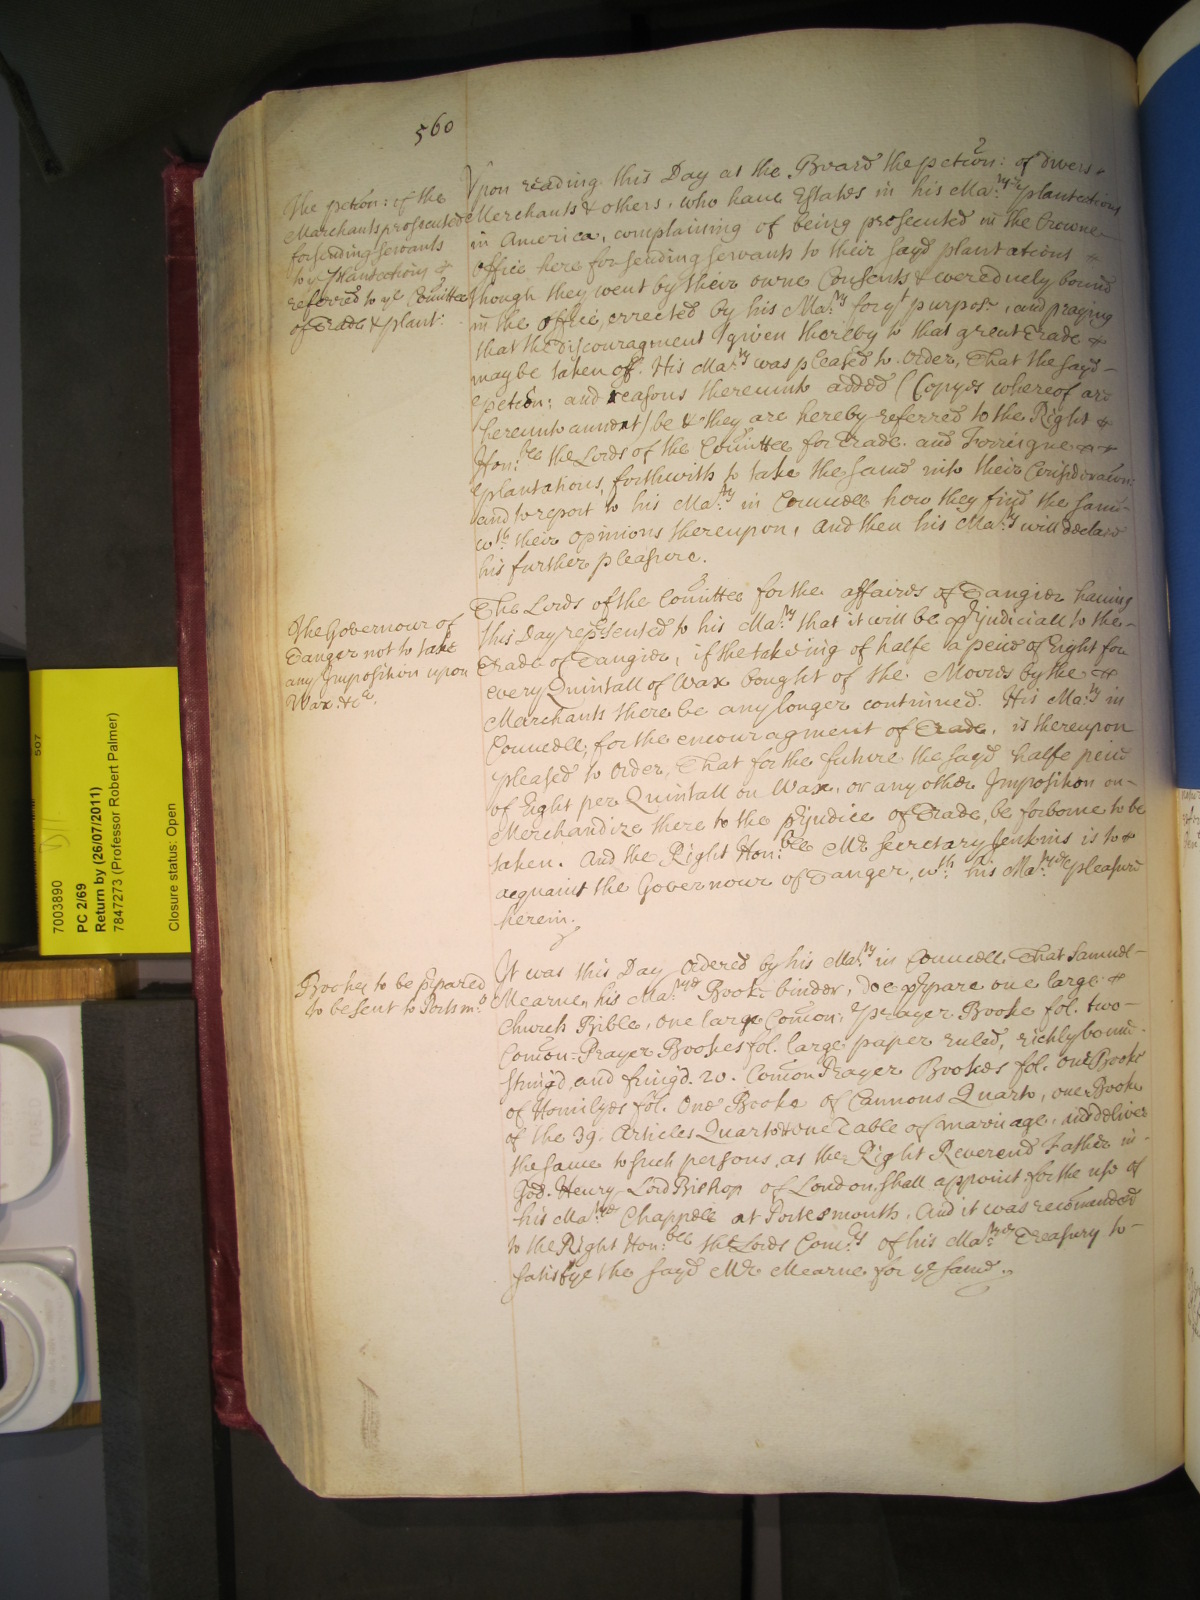 560
The petc̃on: of the
Merchants prosecuted
for sending servants
to yͤ Plantac̃ons &
referred to yͤ Com̃ittee
of Trade & plant:
Upon reading this Day at the Board the petc̃on: of divers
Merchants & others, who have Estates in his Maᵗʸᵉˢ plantations
in America, complaining of being prosecuted in the Crowne
Office here for sending servants to their sayd plantations &
though they went by their owne Consents & were duely bound
in the Office, errected by his Maᵗʸ for yᵗ purpose, and praying
that the Discouragment given thereby to that great Trade &
may be taken off. His Maᵗʸ was pleased to Order, That the sayd
petc̃on: and reasons thereunto added (Copyes whereof are
hereunto annext) be & they are hereby referred to the Right &
Honᵇˡᵉ the Lords of the Com̃ittee for Trade and Forreigne
plantations, forthwith to take the same into their Considerac̃on:
and to report to his Maᵗʸ in Councell how they find the same
wᵗʰ their opinions thereupon, And then his Maᵗʸ will declare
his further pleasure.
The Governour of
Tanger not to take
any Imposition upon
Wax. &cᵃ.
The Lords of the Com̃ittee for the affaires of Tangier having
this Day rep̃sented to his Maᵗʸ that it will be p̃judiciall to the
Trade of Tangier, if the takeing of halfe a peice of Eight for
every Quintall of Wax bought of the Moores by the &
Merchants there be any longer continued. His Maᵗʸ in
Councell, for the encouragment of Trade, is thereupon
pleased to Order, That for the future the sayd halfe peice
of Eight per Quintall on Wax, or any other Imposition on
Merchandize there to the p̃judice of Trade, be forborne to be
taken. And the Right Honᵇˡᵉ Mr Secretary Jenkins is to &
acquaint the Governour of Tanger, wᵗʰ his Maᵗʸᵉˢ pleasure
herein.
Bookes to be p̃pared
to be sent to Portsmᵒ
It was this Day Ordered by his Maᵗʸ in Councell That Samuel
Mearne, his Maᵗʸᵉˢ Book-binder, Doe p̃pare one large &
Church Bible, One large Com̃on: Prayer Booke fol. two
Com̃on-Prayer Bookes fol. large paper ruled, richly bound
string'd, and fring'd. 20. Com̃on Prayer Bookes fol. one Booke
of Homilyes fol. One Booke of Cannons Quarto, one Booke
of the 39. Articles Quarto & one Table of marriage, and deliver
the same to such persons, as the Right Reverend Father in
God. Henry Lord Bishop of London shall appoint for the use of
his Maᵗʸᵉˢ Chappell at Portesmouth. And it was recom̃ended
to the Right Honᵇˡᵉ the Lords Comʳˢ of his Maᵗʸᵉˢ Treasury to
satisfye the sayd Mr Mearne for yͤ same.
507
7003890
PC 2/69
Return by (26/07/2011)
7847273 (Professor Robert Palmer)
Closure status: Open